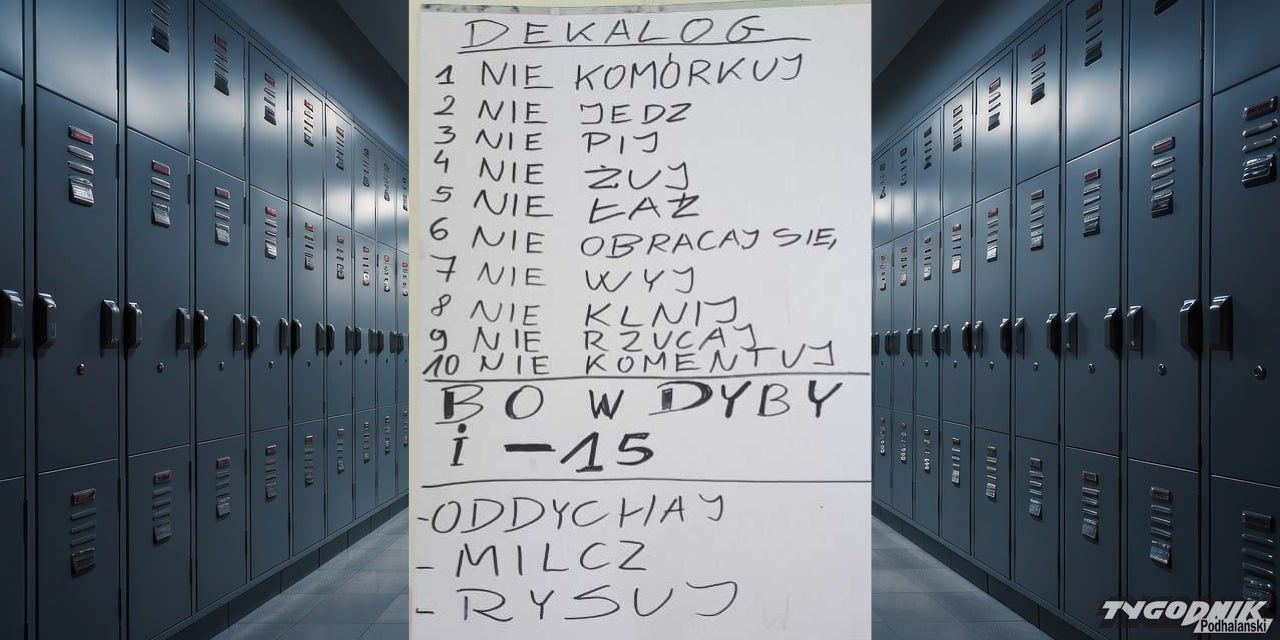 DEKALOG
1 NIE KOMÓRKUJ
2 NIE JEDZ
3 NIE PIJ
4 NIE ŻUJ
5 NIE ŁAŹ
6 NIE OBRACAJ SIĘ
7 NIE WYJ
8 NIE KLNIJ
9 NIE RZUCAJ
10 NIE KOMENTUJ
BO W DYBY
i -15
-ODDYCHAJ
- MILCZ
- RYSUJ
TYGODNIK
Podhalański